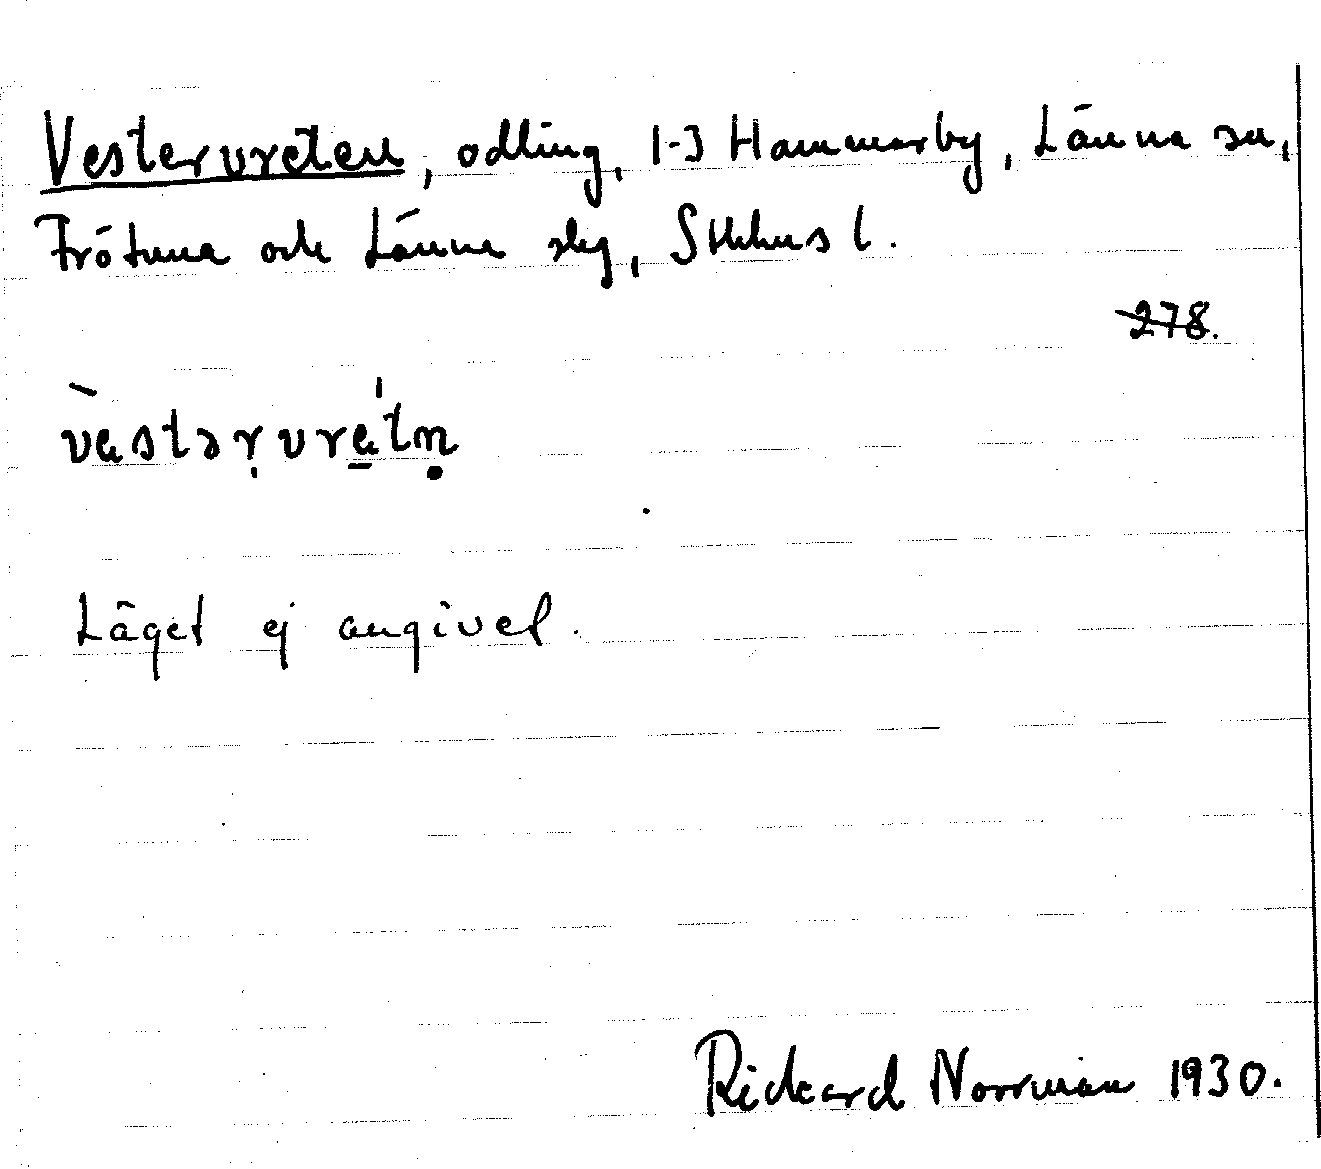 Vestervreten, odling, 1-3 Hammarby, Länna sn,
Frötuna och Länna slg, Sthlms l.
278.
vàstər̥vre̠'tn̥
Läget ej angivet.
Rickard Norrman 1930.